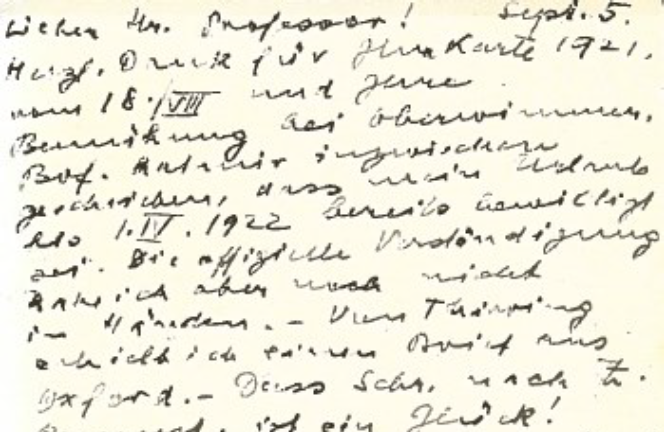 Lieber Hr. Professor! Sept. 5.
Herzl. Dank für Ihre Karte 1921.
vom 18./VIII und Ihre
Bemühung bei
Bof. hat mir inzwischen
geschrieben, dass mein Urlaub
bis 1.IV.1922 bereits bewilligt
sei. Die offizielle Verständigung
habe ich aber noch nicht
in Händen. – Von Thirring
erhielt ich einen Brief aus
Oxford. – Dass Schr. nach Z.
ist ein Glück!